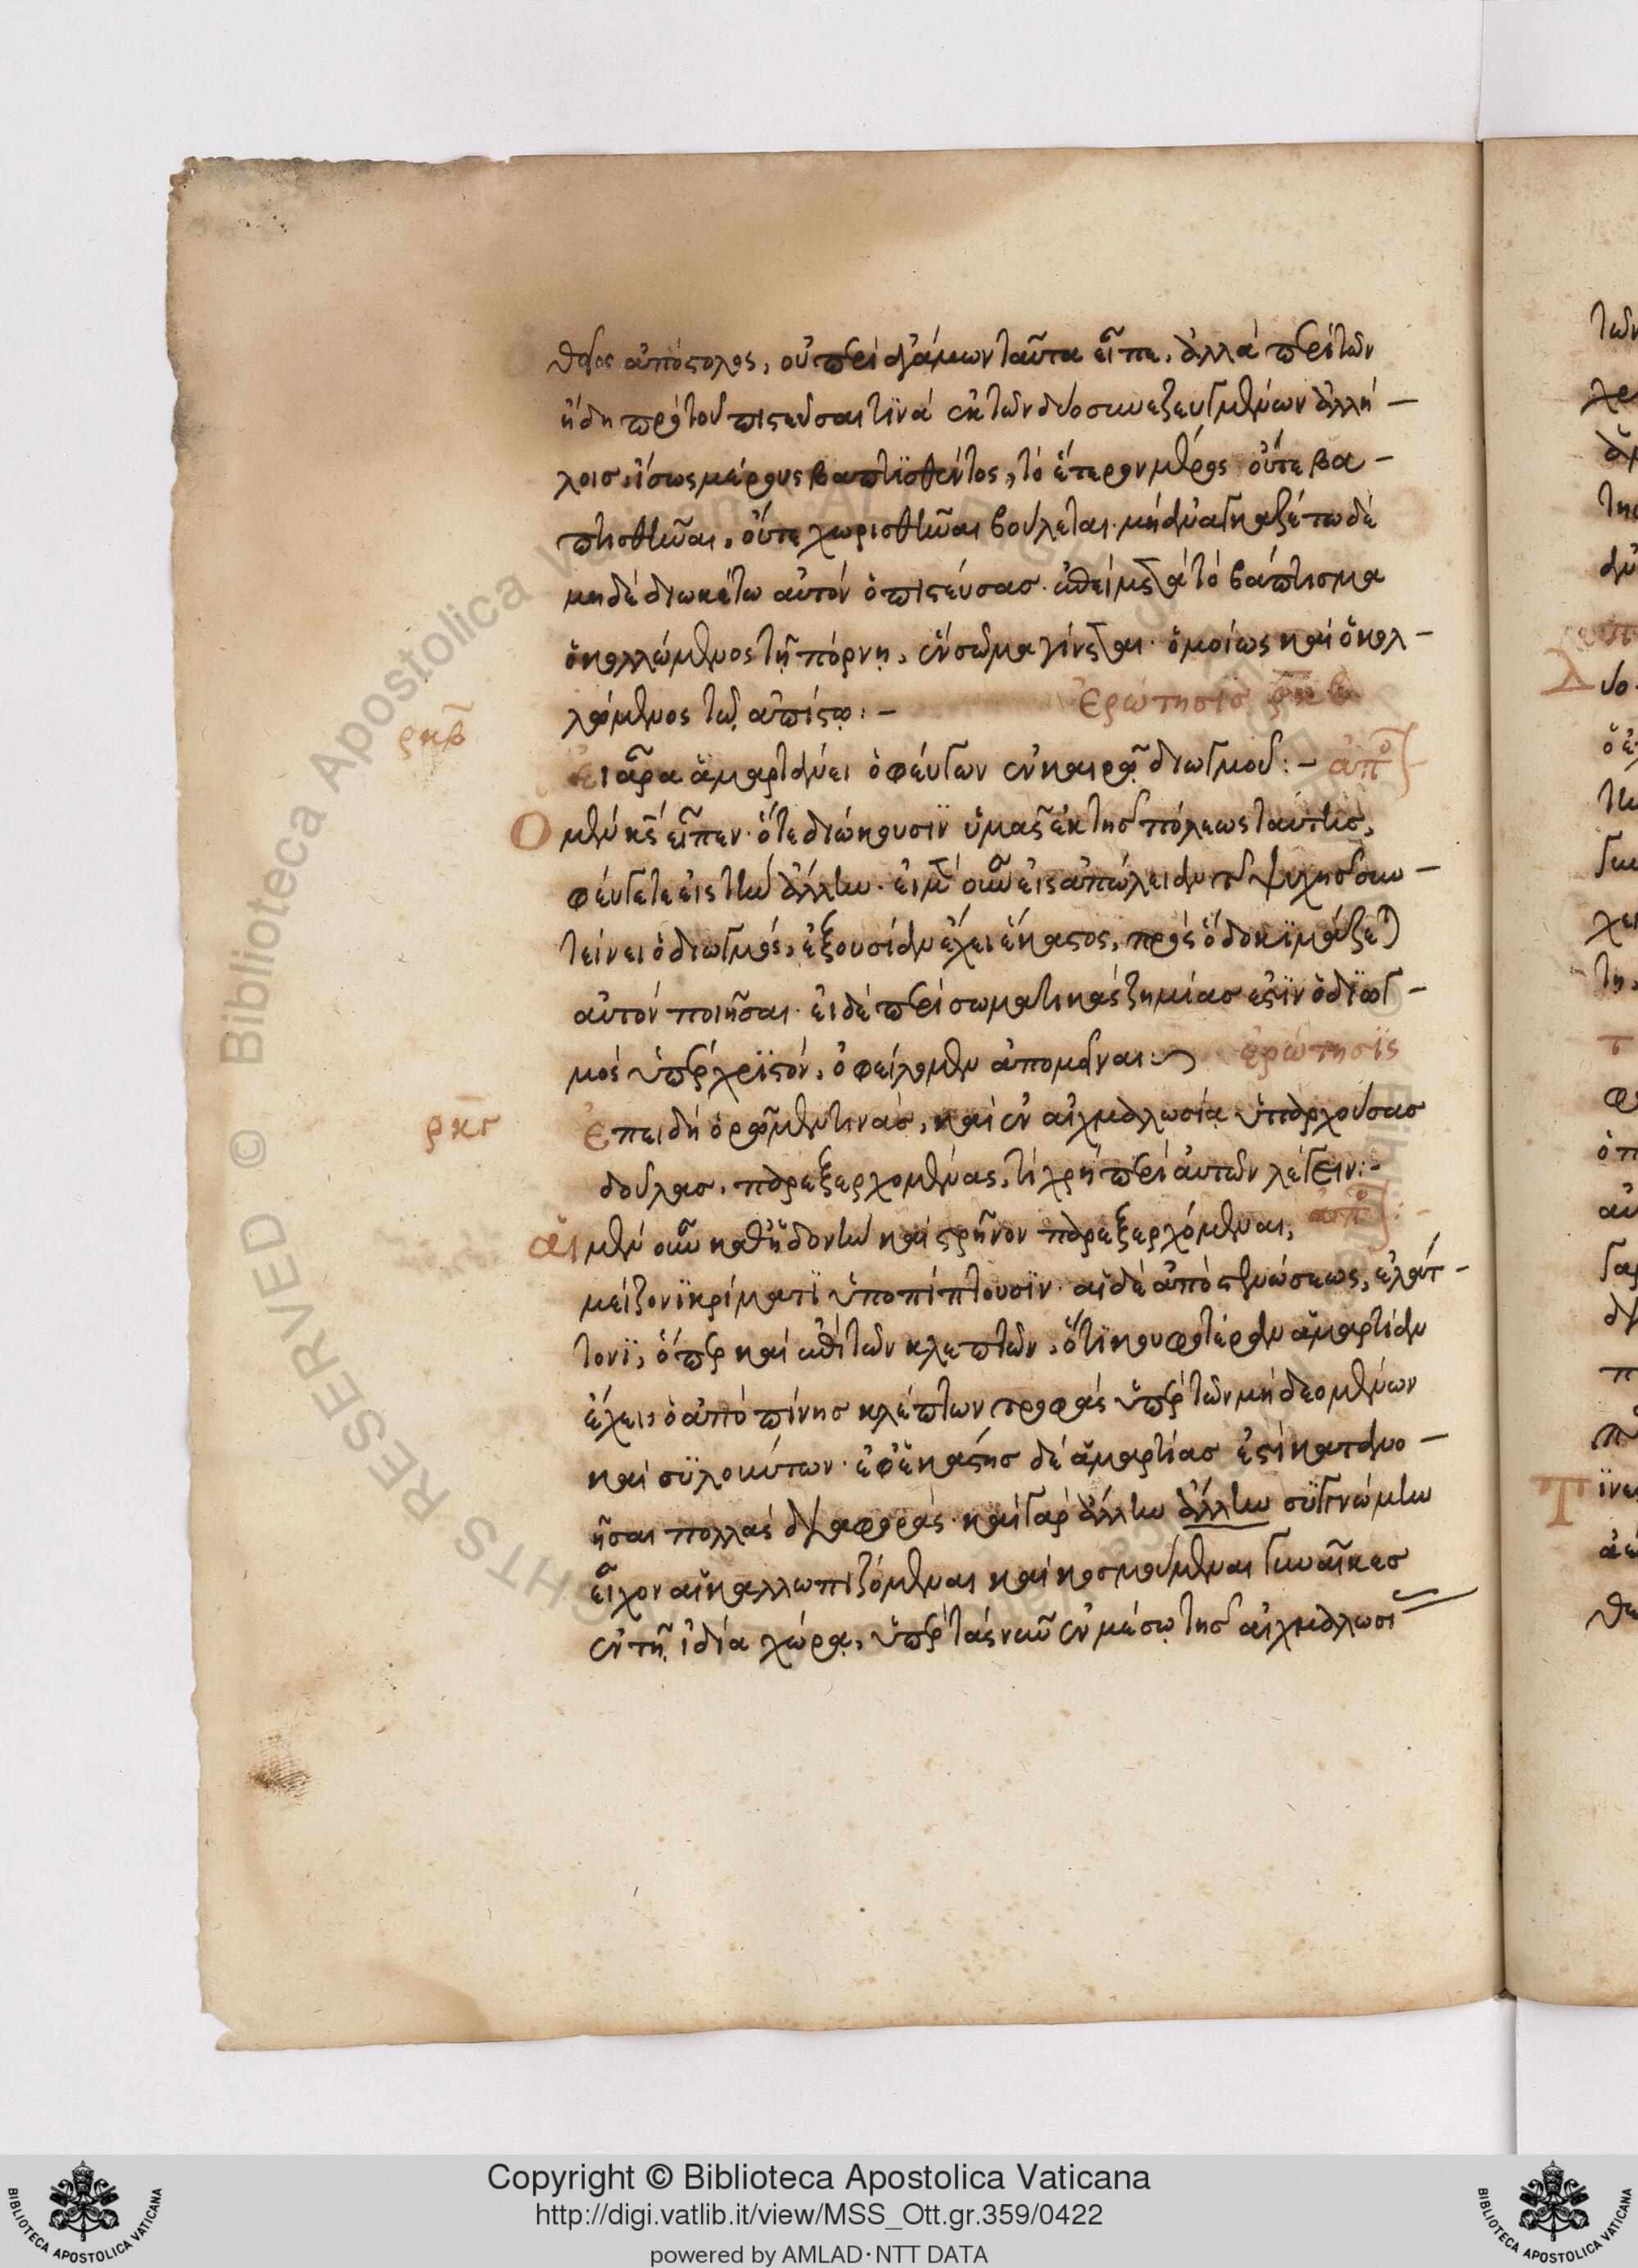 θεῖος ἀπόστολος, οὐ περὶ ἀγάμων ταῦτα εἶπε, ἀλλὰ περὶ τῶν
ἤδη πρὸ τοῦ πιστεῦσαι τινὰ ἐκ τῶν δύο συνεζευγμένων ἀλλή-
λοισ, ἴσως μέρους βαπτισθέντος, τὸ ἕτερον μέρος οὔτε βα-
πτισθῆναι, οὔτε χωρισθῆναι βούλεται. μὴ ἀναγκαζέτω δὲ
μηδὲ διωκέτω αὐτὸν ὁ πιστεύσας. ἐπεὶ μετὰ τὸ βάπτισμα
ὁ κολλώμενος τῇ πόρνῃ, ἓν σῶμα γίνεται. ὁμοίως καὶ ὁ κολ-
λώμενος τῷ ἀπίστῳ:- Ἐρώτησις ρκβ
ρκβ
Εἰ ἆρα ἁμαρτάνει ὁ φεύγων ἐν καιρῷ διωγμοῦ:- ἀπό
Ὁ μὲν κς εἶπεν. ὅτε διώκουσιν ὑμᾶς ἐκ τῆς πόλεως ταύτης,
φεύγετε εἰς τὴν ἄλλην. εἰ μὲν οὖν εἰς ἀπώλειαν ψυχῆς συν-
τείνει ὁ διωγμός, ἐξουσίαν ἔχει ἕκαστος, πρὸς ὃ δοκιμάζει
αὐτὸν ποιῆσαι. εἰ δὲ περὶ σωματικὰς ζημίας ἐστὶν ὁ διωγ-
μὸς ὑπὲρ χριστόν, ὀφείλομεν ἀπομεῖναι: ἐρώτησις
ρκγ
Ἐπειδὴ ὁρῶμεν τινὰς, καὶ ἐν αἰχμαλωσίᾳ ὑπαρχούσας
δούλας, παρεξερχομένας, τί χρὴ περὶ αὐτῶν λέγειν:-
ἀπό:-
Αἱ μὲν οὖν καθ' ἡδονὴν καὶ στρῆνον παρεξερχόμεναι,
μείζονι κρίματι ὑποπίπτουσιν. αἱ δὲ ἀπὸ στενώσεως, ἐλάτ-
τονι, ὅπερ καὶ ἐπὶ τῶν κλεπτῶν, ὅτι κουφοτέραν ἁμαρτίαν
ἔχει, ὁ ἀπὸ πείνης κλέπτων τροφάς ὑπὲρ τῶν μὴ δεομένων
καὶ συλούντων. ἐφ' ἑκάστης δὲ ἁμαρτίας ἐστὶ κατανο-
ῆσαι πολλὰς διαφοράς. καὶ γὰρ ἄλλην ἄλλην συγγνώμην
εἶχον αἱ καλλωπιζόμεναι καὶ κοσμούμεναι γυναῖκες
ἐν τῇ ἰδίᾳ χώρᾳ, ὑπὲρ τὰς νῦν ἐν μέσῳ τῆς αἰχμαλωσί
Copyright © Biblioteca Apostolica Vaticana
http://digi.vatlib.it/view/MSS_Ott.gr.359/0422
powered by AMLAD·NTT DATA
BIBLIOTECA APOSTOLICA VATICANA
BIBLIOTECA APOSTOLICA VATICANA